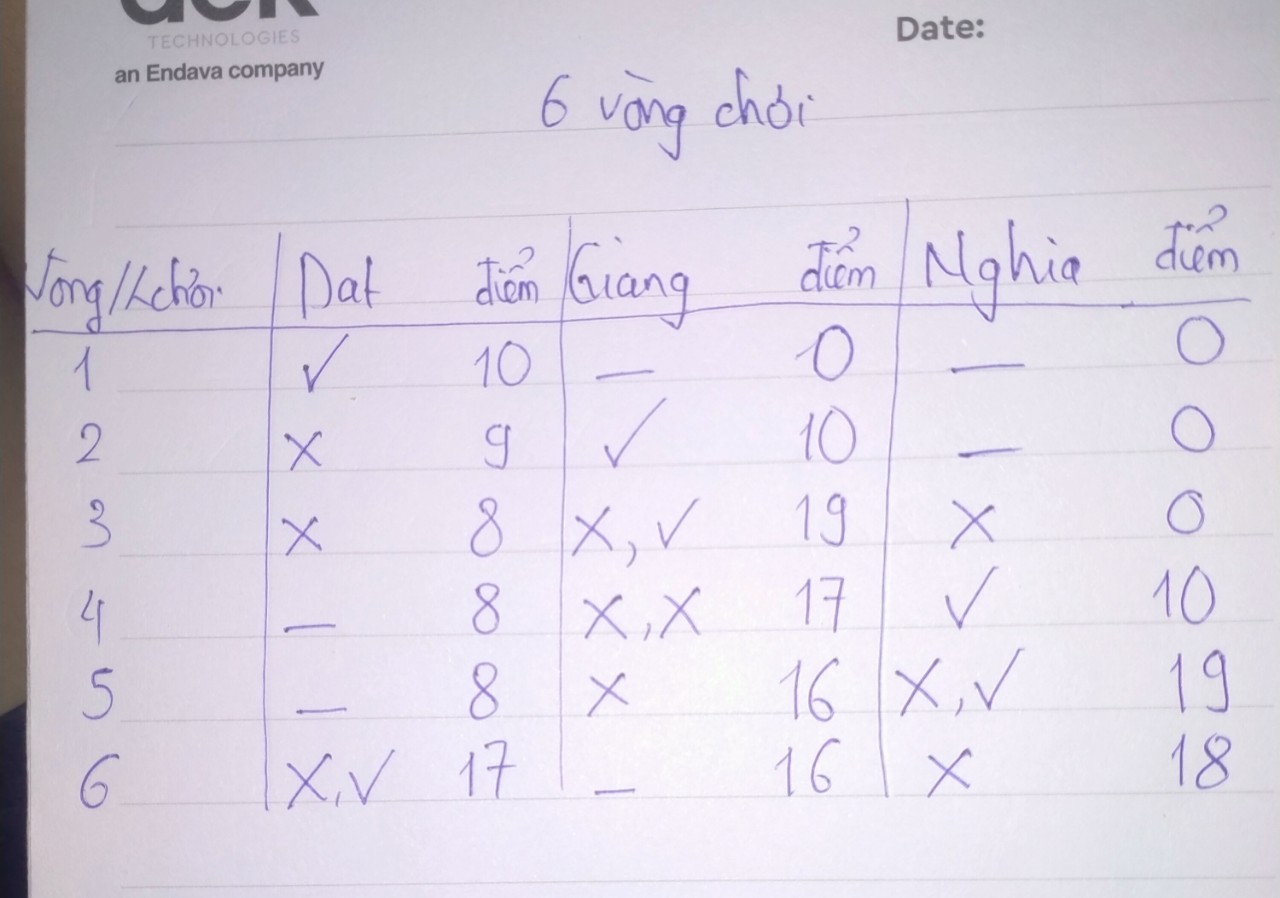 TECHNOLOGIES
an Endava company
Date:
6 vòng chơi
Vòng/Lchơi Dat điểm Giang điểm Nghia điểm
1 ✓ 10 — 0 — 0
2 X 9 ✓ 10 — 0
3 X 8 X, ✓ 19 X 0
4 — 8 X, X 17 ✓ 10
5 — 8 X 16 X, ✓ 19
6 X, ✓ 17 — 16 X 18